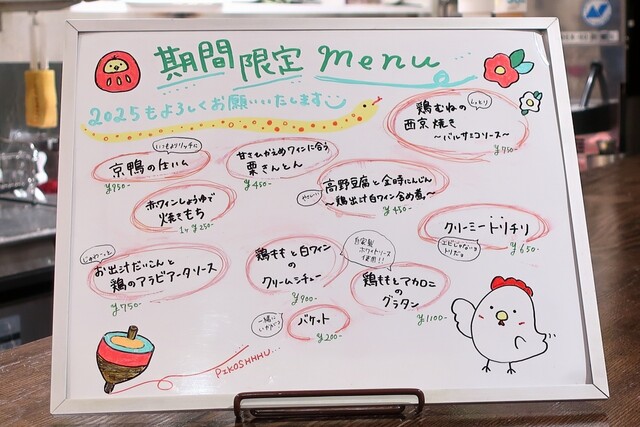 期間限定 menu
2025もよろしくお願いいたします
いつもよりリッチに
京鴨の生ハム
¥950-
甘さひかえめワインに合う
栗きんとん
¥450-
しっとり
鶏むねの
西京焼き
〜バルサミコソース〜
¥750-
赤ワインしょうゆで
焼きもち
1ヶ ¥250-
やさしい
高野豆腐と金時にんじん
〜鶏出汁白ワイン含め煮〜
¥450-
クリーミートリチリ
エビじゃないョ
トリだョ
¥650-
じゅわ〜っと
お出汁だいこんと
鶏のアラビアータソース
¥750-
鶏ももと白ワイン
の
クリームシチュー
¥900-
自家製
ホワイトソース
使用!!
鶏ももとマカロニ
のグラタン
¥1100-
一緒に
いかが?
バケット
¥200-
PZKOSHHHU...